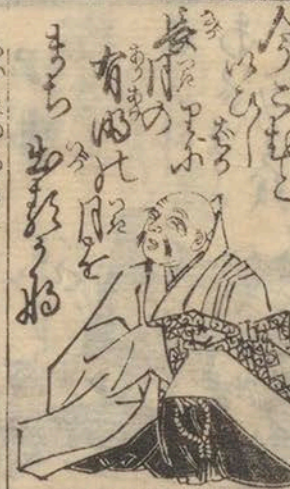 今こむと
いひしばか
りに
長月の
有明の月を
まち
出つるかな